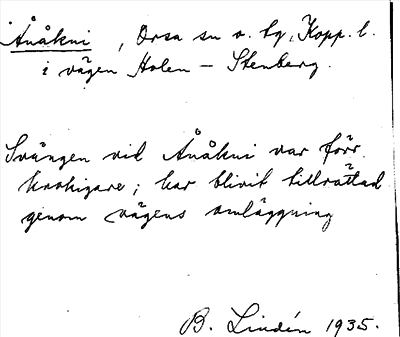 Ånåkni, Orsa sn o. tg, Kopp. l.
i vägen Holen – Stenberg.
Svängen vid Ånåkni var förr
krokigare; har blivit tillrättad
genom vägens omläggning
B. Lindén 1935.